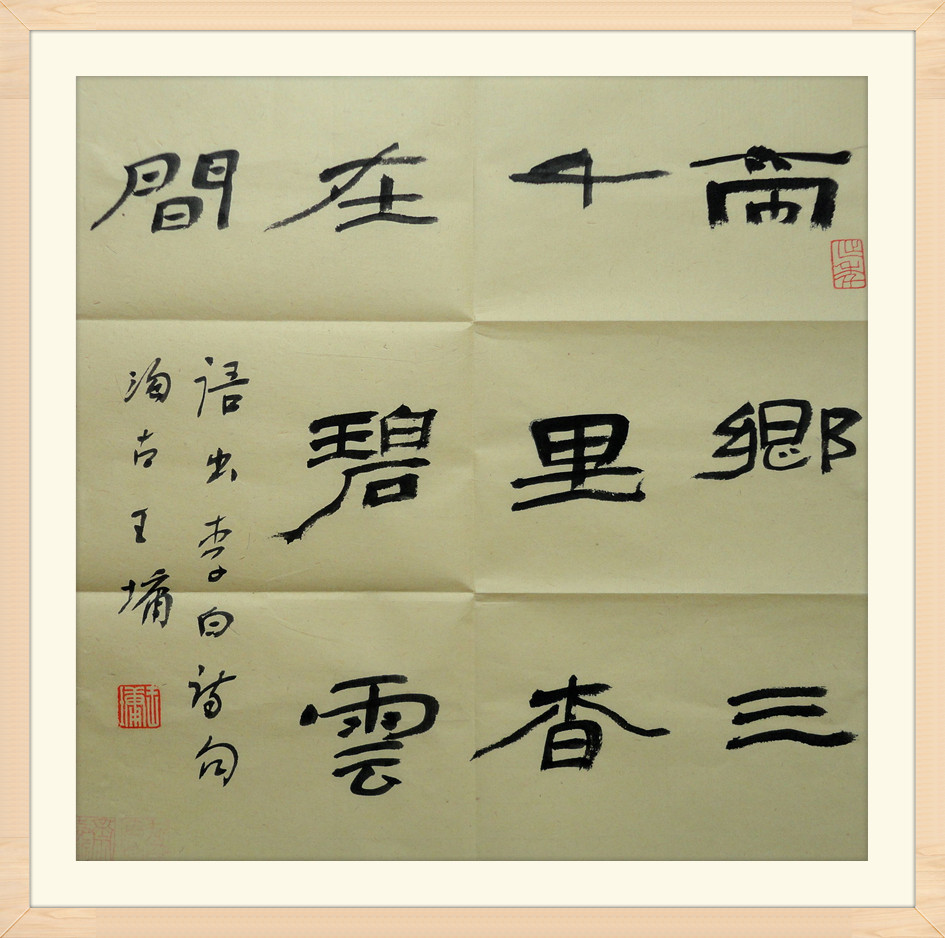 帝鄉三
千里杳
在碧雲
間
語出李白詩句
古王墉